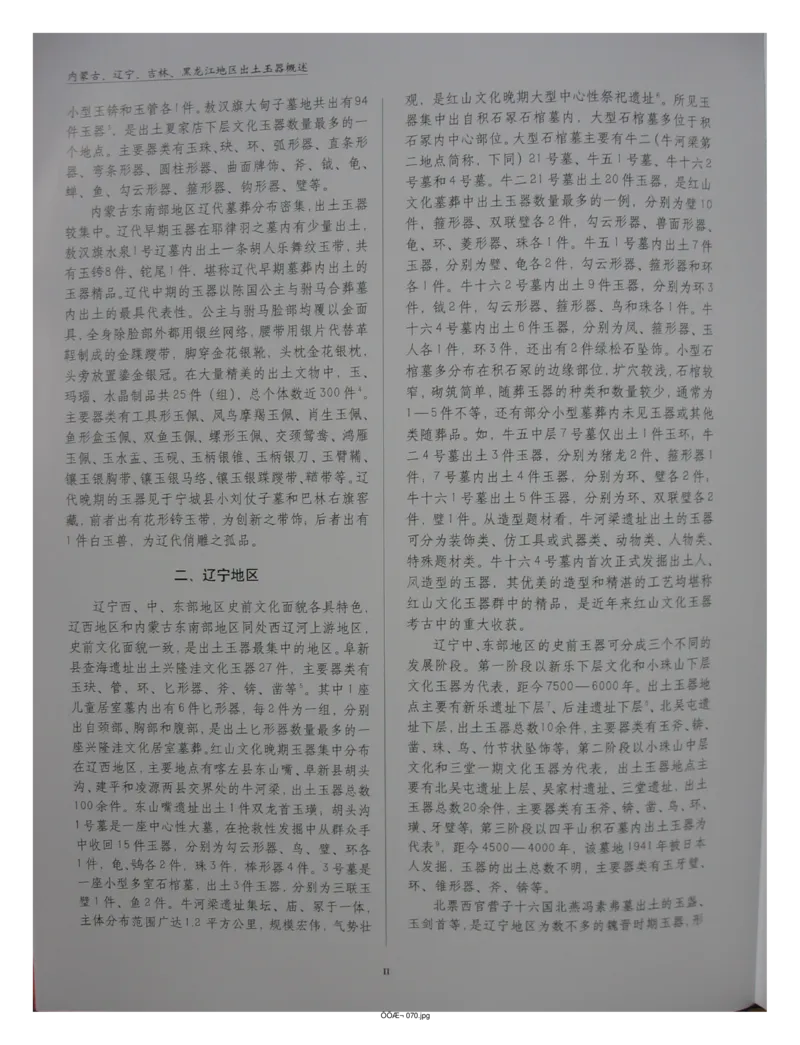 内蒙古、辽宁、吉林、黑龙江地区出土玉器概述
小型玉锛和玉管各1件。敖汉旗大甸子墓地共出有94
件玉器³，是出土夏家店下层文化玉器数量最多的一
个地点。主要器类有玉珠、玦、环、弧形器、直条形
器、弯条形器、圆柱形器、曲面牌饰、斧、钺、龟、
蝉、鱼、勾云形器、箍形器、钩形器、璧等。
内蒙古东南部地区辽代墓葬分布密集，出土玉器
较集中。辽代早期玉器在耶律羽之墓内有少量出土，
敖汉旗水泉1号辽墓内出土一条胡人乐舞纹玉带，共
有玉銙8件、铊尾1件，堪称辽代早期墓葬内出土的
玉器精品。辽代中期的玉器以陈国公主与驸马合葬墓
内出土的最具代表性。公主与驸马脸部均覆以金面
具，全身除脸部外都用银丝网络，腰带用银片代替革
鞓制成的金蹀躞带，脚穿金花银靴，头枕金花银枕，
头旁放置鎏金银冠。在大量精美的出土文物中，玉、
玛瑙、水晶制品共25件（组），总个体数近300件⁴。
主要器类有工具形玉佩、凤鸟摩羯玉佩、肖生玉佩、
鱼形盒玉佩、双鱼玉佩、螺形玉佩、交颈鸳鸯、鸿雁
玉佩、玉水盂、玉砚、玉柄银锥、玉柄银刀、玉臂鞲、
镶玉银胸带、镶玉银马络、镶玉银蹀躞带、鞧带等。辽
代晚期的玉器见于宁城县小刘仗子墓和巴林右旗窖
藏，前者出有花形銙玉带，为创新之带饰；后者出有
1件白玉兽，为辽代俏雕之孤品。
二、辽宁地区
辽宁西、中、东部地区史前文化面貌各具特色，
辽西地区和内蒙古东南部地区同处西辽河上游地区，
史前文化面貌一致，是出土玉器最集中的地区。阜新
县查海遗址出土兴隆洼文化玉器27件，主要器类有
玉玦、管、环、匕形器、斧、锛、凿等⁵。其中1座
儿童居室墓内出有6件匕形器，每2件为一组，分别
出自颈部、胸部和腹部，是出土匕形器数量最多的一
座兴隆洼文化居室墓葬。红山文化晚期玉器集中分布
在辽西地区，主要地点有喀左县东山嘴、阜新县胡头
沟、建平和凌源两县交界处的牛河梁，出土玉器总数
100余件。东山嘴遗址出土1件双龙首玉璜；胡头沟
1号墓是一座中心性大墓，在抢救性发掘中从群众手
中收回15件玉器，分别为勾云形器、鸟、璧、环各
1件，龟、鸮各2件，珠3件，棒形器4件。3号墓是
一座小型多室石棺墓，出土3件玉器，分别为三联玉
璧1件、鱼2件。牛河梁遗址集坛、庙、冢于一体，
主体分布范围广达1.2平方公里，规模宏伟，气势壮
观，是红山文化晚期大型中心性祭祀遗址⁶。所见玉
器集中出自积石冢石棺墓内，大型石棺墓多位于积
石冢内中心部位。大型石棺墓主要有牛二（牛河梁第
二地点简称，下同）21号墓、牛五1号墓、牛十六2
号墓和4号墓。牛二21号墓出土20件玉器，是红山
文化墓葬中出土玉器数量最多的一例，分别为璧10
件，箍形器、双联璧各2件，勾云形器、兽面形器、
龟、环、菱形器、珠各1件。牛五1号墓内出土7件
玉器，分别为璧、龟各2件，勾云形器、箍形器和环
各1件。牛十六2号墓内出土9件玉器，分别为环3
件，钺2件，勾云形器、箍形器、鸟和珠各1件。牛
十六4号墓内出土6件玉器，分别为凤、箍形器、玉
人各1件，环3件，还出有2件绿松石坠饰。小型石
棺墓多分布在积石冢的边缘部位，圹穴较浅，石棺较
窄，砌筑简单，随葬玉器的种类和数量较少，通常为
1—5件不等，还有部分小型墓葬内未见玉器或其他
类随葬品。如，牛五中层7号墓仅出土1件玉环；牛
二4号墓出土3件玉器，分别为猪龙2件、箍形器1
件；7号墓内出土4件玉器，分别为环、璧各2件；
牛十六1号墓出土5件玉器，分别为环、双联璧各2
件，璧1件。从造型题材看，牛河梁遗址出土的玉器
可分为装饰类、仿工具或武器类、动物类、人物类、
特殊题材类。牛十六4号墓内首次正式发掘出土人、
凤造型的玉器，其优美的造型和精湛的工艺均堪称
红山文化玉器群中的精品，是近年来红山文化玉器
考古中的重大收获。
辽宁中、东部地区的史前玉器可分成三个不同的
发展阶段。第一阶段以新乐下层文化和小珠山下层
文化玉器为代表，距今7500—6000年。出土玉器地
点主要有新乐遗址下层⁷、后洼遗址下层⁸、北吴屯遗
址下层，出土玉器总数10余件，主要器类有玉斧、锛、
凿、珠、鸟、竹节状坠饰等；第二阶段以小珠山中层
文化和三堂一期文化玉器为代表，出土玉器地点主
要有北吴屯遗址上层、吴家村遗址、三堂遗址，出土
玉器总数20余件，主要器类有玉斧、锛、凿、鸟、环、
璜、牙璧等；第三阶段以四平山积石墓内出土玉器为
代表⁹，距今4500—4000年，该墓地1941年被日本
人发掘，玉器的出土总数不明，主要器类有玉牙璧、
环、锥形器、斧、锛等。
北票西官营子十六国北燕冯素弗墓出土的玉盏、
玉剑首等，是辽宁地区为数不多的魏晋时期玉器，形
II
ÖÐÆ¬ 070.jpg